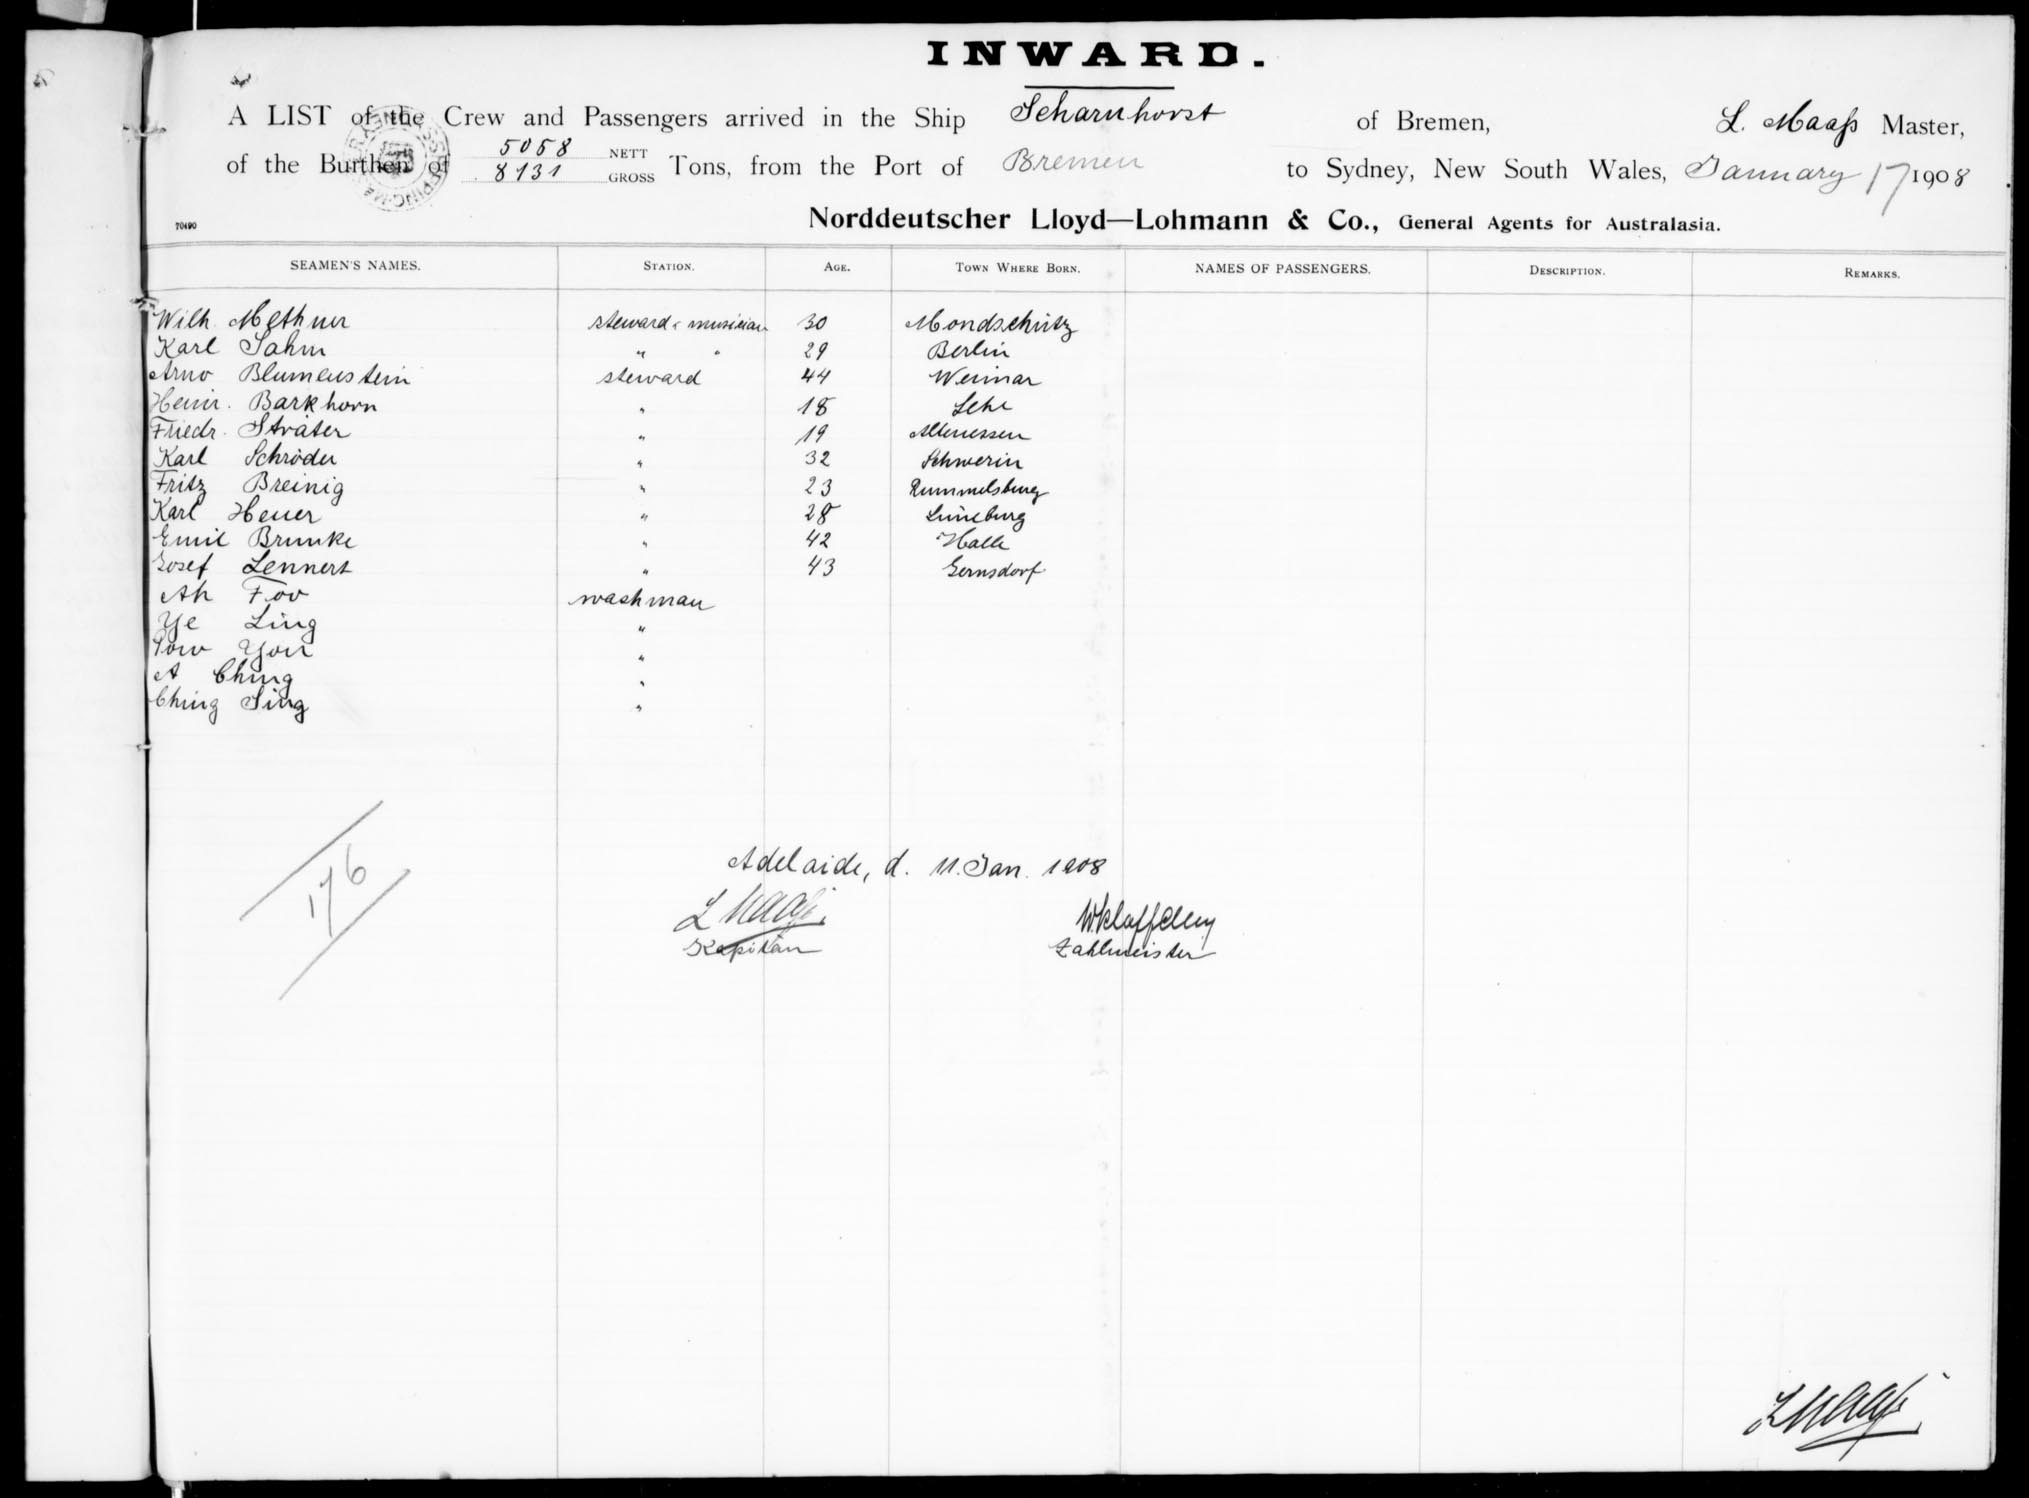 INWARD.
A LIST of the Crew and Passengers arrived in the Ship Scharnhorst of Bremen, L. Maaß Master,
of the Burthen of 5058 NETT 8131 GROSS Tons, from the Port of Bremen to Sydney, New South Wales, January 17 1908
70490 Norddeutscher Lloyd—Lohmann & Co., General Agents for Australasia.
SEAMEN'S NAMES. STATION. AGE. TOWN WHERE BORN. NAMES OF PASSENGERS. DESCRIPTION. REMARKS.
Wilh. Methner steward & musician 30 Mondschütz
Karl Sahm " " 29 Berlin
Arno Blumenstein steward 44 Weimar
Heinr. Barkhorn " 18 Lehe
Friedr. Sträter " 19 Altenessen
Karl Schröder " 32 Schwerin
Fritz Breinig " 23 Rummelsburg
Karl Heuer " 28 Lüneburg
Emil Brunke " 42 Halle
Josef Lennert " 43 Gernsdorf
Ah Foo washman
Ye Ling "
Pow You "
A Ching "
Ching Sing "
176
Adelaide, d. 11. Jan. 1908
L Maaß
Kapitän Zahlmeister
L Maaß